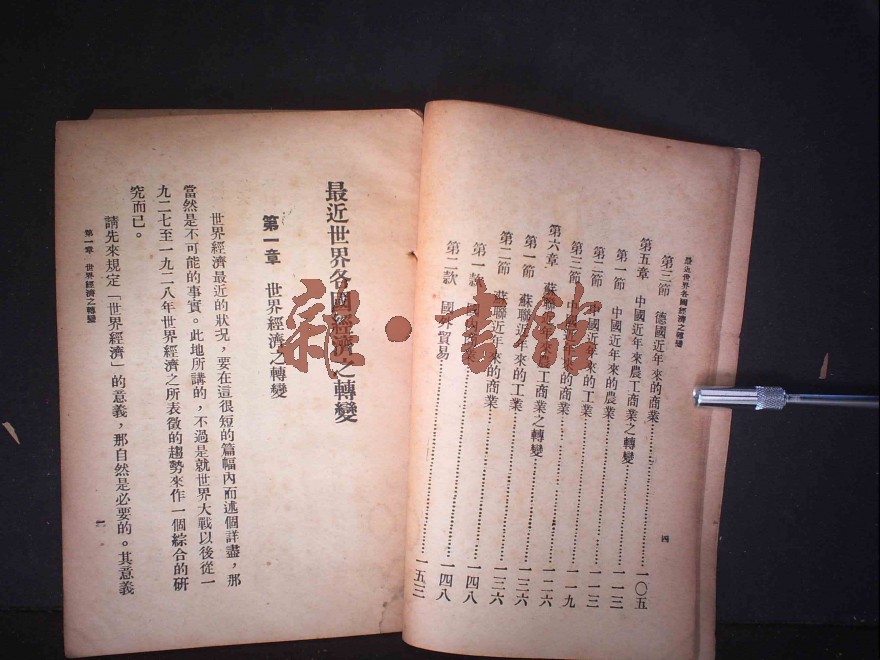 最近世界各國經濟之轉變
四
第三節 德國近年來的商業……一〇五
第五章 中國近年來農工商業之轉變……一一三
第一節 中國近年來的農業……一一三
第二節 中國近年來的工業……一一九
第三節 中國近年來的商業……一二六
第六章 蘇聯近年來農工商業之轉變……一三六
第一節 蘇聯近年來的工業……一三六
第二節 蘇聯近年來的商業……一四八
第一款 國內商業……一四八
第二款 國外貿易……一五三
最近世界各國經濟之轉變
第一章 世界經濟之轉變
世界經濟最近的狀況，要在這很短的篇幅內而述個詳盡，那
當然是不可能的事實。此地所講的，不過是就世界大戰以後從一
九二七至一九二八年世界經濟之所表徵的趨勢來作一個綜合的研
究而已。
請先來規定「世界經濟」的意義，那自然是必要的。其意義
第一章 世界經濟之轉變
一
雜·書館